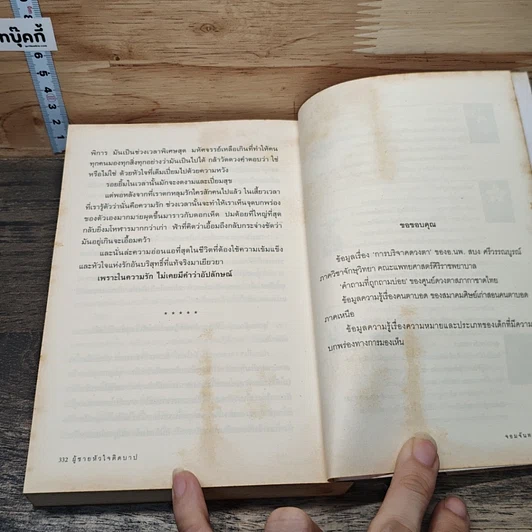 บุ๊คกี้
1 2 3 4 5 6
พิการ มันเป็นช่วงเวลาพิเศษสุด มหัศจรรย์เหลือเกินที่ทำให้คน
ทุกคนมองทุกสิ่งทุกอย่างว่ามันเป็นไปได้ กล้าวัดดวงคำตอบว่า ใช่
หรือไม่ใช่ ด้วยหัวใจที่เต็มเปี่ยมไปด้วยความหวัง
รอยยิ้มในเวลานั้นมักจะงดงามและเปี่ยมสุข
แต่พอหลังจากที่เราตกหลุมรักใครสักคนไปแล้ว ในเสี้ยวเวลา
ที่เรารู้ตัวว่านั่นคือความรัก ช่วงเวลานั้นจะทำให้เราเห็นจุดบกพร่อง
ของตัวเองมากมายผุดขึ้นมาราวกับดอกเห็ด ปมด้อยที่ใหญ่ที่สุด
กลับยิ่งมโหฬารมากกว่าเก่า ฟ้าที่คิดว่าเอื้อมถึงกลับกระจ่างชัดว่า
มันอยู่เกินจะเอื้อมคว้า
และนั่นล่ะความอ่อนแอที่สุดในชีวิตที่ต้องใช้ความเข้มแข็ง
และหัวใจแห่งรักอันบริสุทธิ์ที่แท้จริงมาเยียวยา
เพราะในความรัก ไม่เคยมีคำว่าอัปลักษณ์
* * * * *
332 ผู้ชายหัวใจติดบาป
ขอขอบคุณ
ข้อมูลเรื่อง 'การบริจาคดวงตา' ของอ.นพ. สบง ศรีวรรณบูรณ์
ภาควิชาจักษุวิทยา คณะแพทยศาสตร์ศิริราชพยาบาล
'คำถามที่ถูกถามบ่อย' ของศูนย์ดวงตาสภากาชาดไทย
ข้อมูลความรู้เรื่องคนตาบอด ของสมาคมศิษย์เก่าสอนคนตาบอด
ภาคเหนือ
ข้อมูลความรู้เรื่องความหมายและประเภทของเด็กที่มีความ
บกพร่องทางการมองเห็น